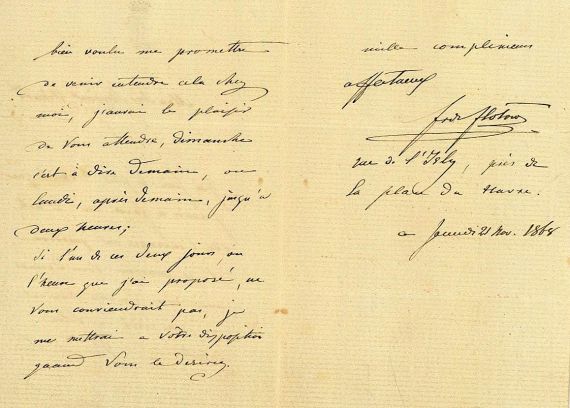 bien voulu me promettre
de venir entendre cela chez
moi, j'aurai le plaisir
de vous attendre, dimanche
c'est à dire demain, ou
lundi, après demain, jusqu'à
deux heures;
Si l'un de ces deux jours, ou
l'heure que j'ai proposé, ne
vous conviendrait pas, je
me mettrai a votre disposition
quand vous le désirez.
mille complimens
affectueux
fréd. flotow
rue de l'Isly, près de
la place du Havre.
21 Nov. 1868